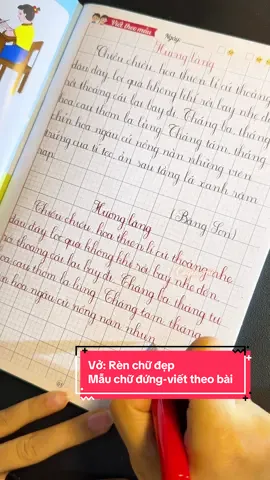 Viết theo mẫu
Ngày
Hương làng
Chiều chiều, hoa thiên lí cứ thoảng
đâu đây, lọc qua không khí rồi bay nhẹ đến,
rồi thoáng cái lại bay đi. Tháng ba, tháng
hoa cau thơm lạ lùng. Tháng tám, tháng
chín, hoa ngâu cứ nồng nàn những viên
trứng cua tí tẹo, ẩn sau tầng lá xanh rậm
rạp.
(Băng Sơn)
Hương làng
Chiều chiều, hoa thiên lí cứ thoảng nhẹ
đâu đây, lọc qua không khí rồi bay nhẹ đến,
rồi thoáng cái lại bay đi. Tháng ba, tháng tư
hoa cau thơm lạ lùng. Tháng tám, tháng
hoa ngâu cứ nồng nàn những
Vở: Rèn chữ đẹp
Mẫu chữ đứng-viết theo bài